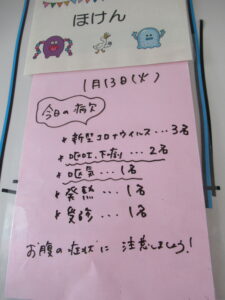 ほけん
1月13日(火)
今日の病欠
*新型コロナウイルス…3名
*嘔吐、下痢…2名
*嘔気…1名
*発熱…1名
*受診…1名
お腹の症状に注意しましょう!